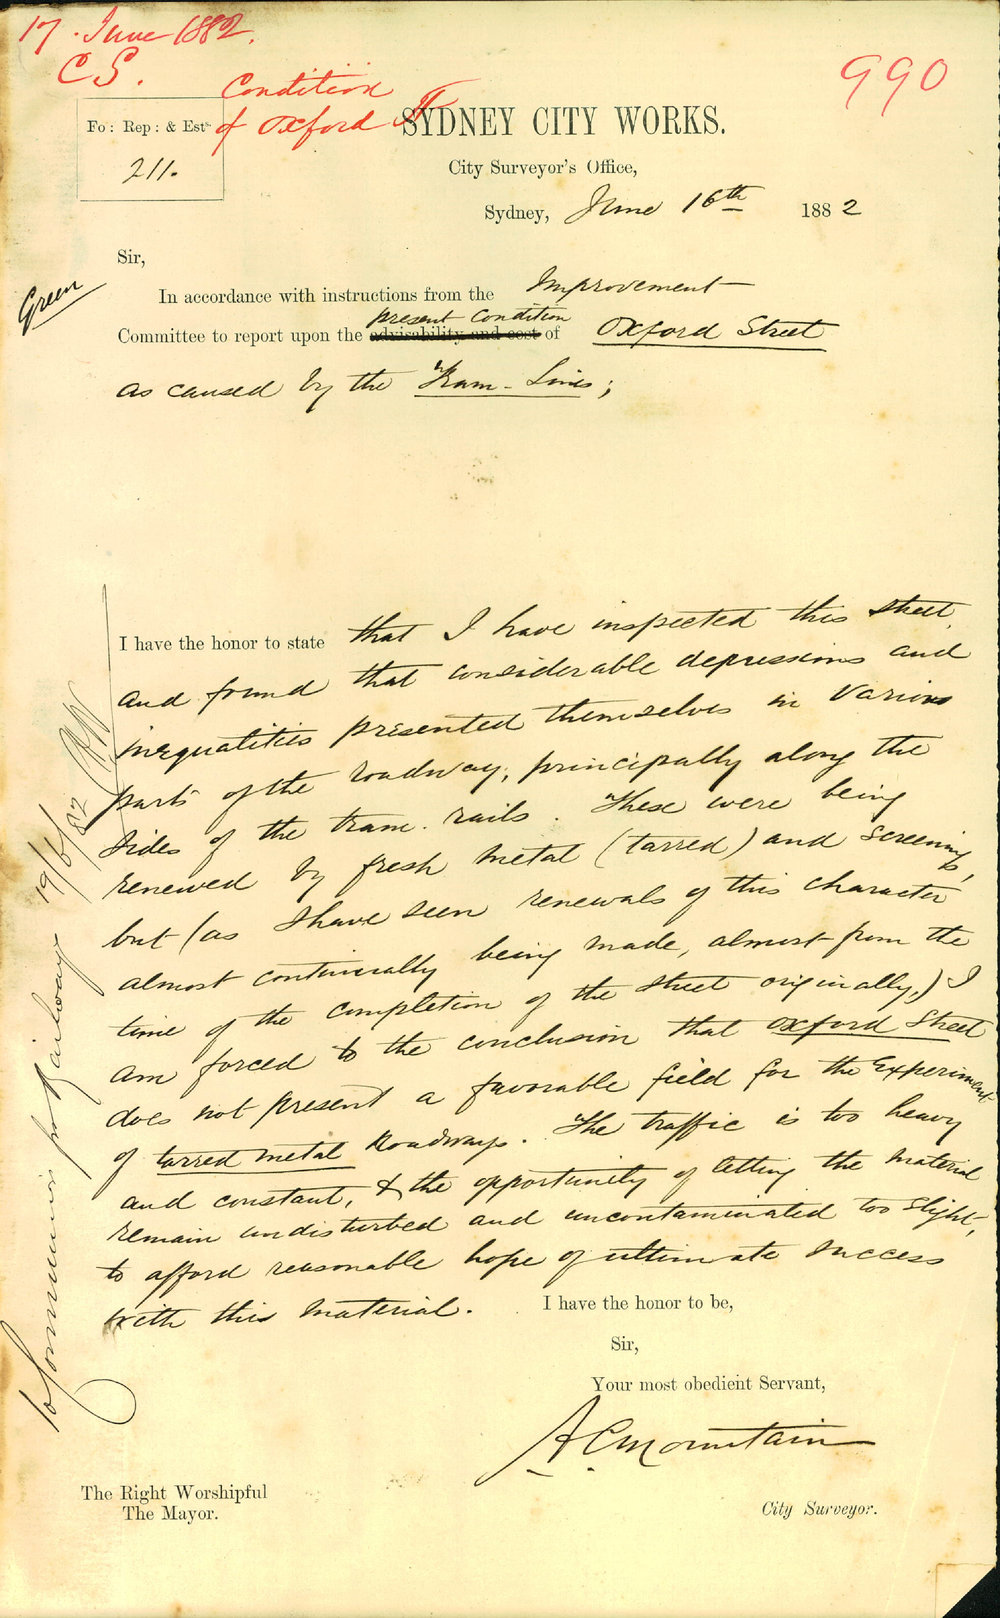 17. June 1882.
C S.
Condition
of Oxford St
990
Fo: Rep: & Est
211.
SYDNEY CITY WORKS.
City Surveyor's Office,
Sydney, June 16th 1882
Sir,
Green
In accordance with instructions from the Improvement
present condition
Committee to report upon the advisability and cost of Oxford Street
as caused by the Tram-Lines;
I have the honor to state that I have inspected this street,
and found that considerable depressions and
inequalities presented themselves in various
parts of the roadway, principally along the
sides of the tram-rails. These were being
renewed by fresh metal (tarred) and screenings,
but (as I have seen renewals of this character
almost continually being made, almost from the
time of the completion of the street originally,) I
am forced to the conclusion that Oxford Street
does not present a favorable field for the Experiment
of tarred metal Roadways. The traffic is too heavy
and constant, & the opportunity of letting the material
remain undisturbed and uncontaminated too slight,
to afford reasonable hope of ultimate success
with this material.
I have the honor to be,
Sir,
Your most obedient Servant,
A C Mountain
City Surveyor.
The Right Worshipful
The Mayor.
To Commissioner for Railways 19/6/82